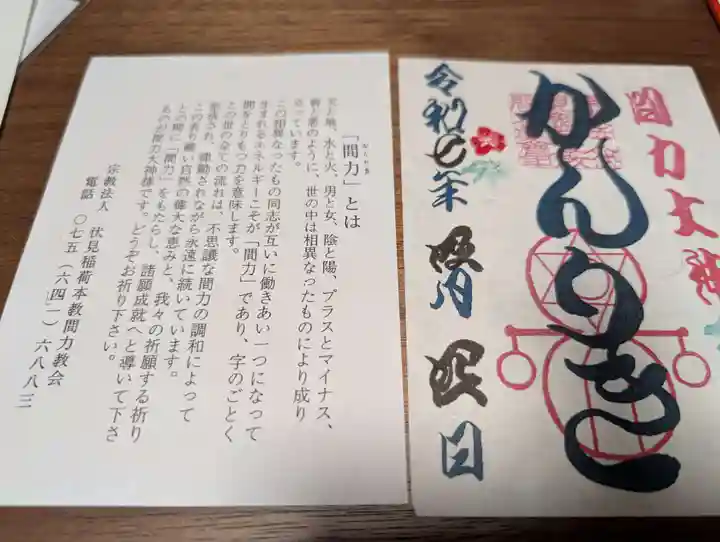 間力大神
かんりき
令和七年
日
「間力」とは
天と地、水と火、男と女、陰と陽、プラスとマイナス、
善と悪のように、世の中は相異なったものにより成り
立っています。
この相異なったもの同志が互いに働きあい一つになって
生まれるエネルギーこそが「間力」であり、字のごとく
間をとりもつ力を意味します。
この世の全ての流れは、不思議な間力の調和によって
律動されながら永遠に続いています。
この素り難い自然の偉大な恵みと、我々の祈願する祈り
との間に「間力」をもたらし、諸願成就へと導いて下さ
るものが間力大神様です。どうぞお祈り下さい。
宗教法人 伏見稲荷本教間力教会
電話 〇七五(六四一)六八八三